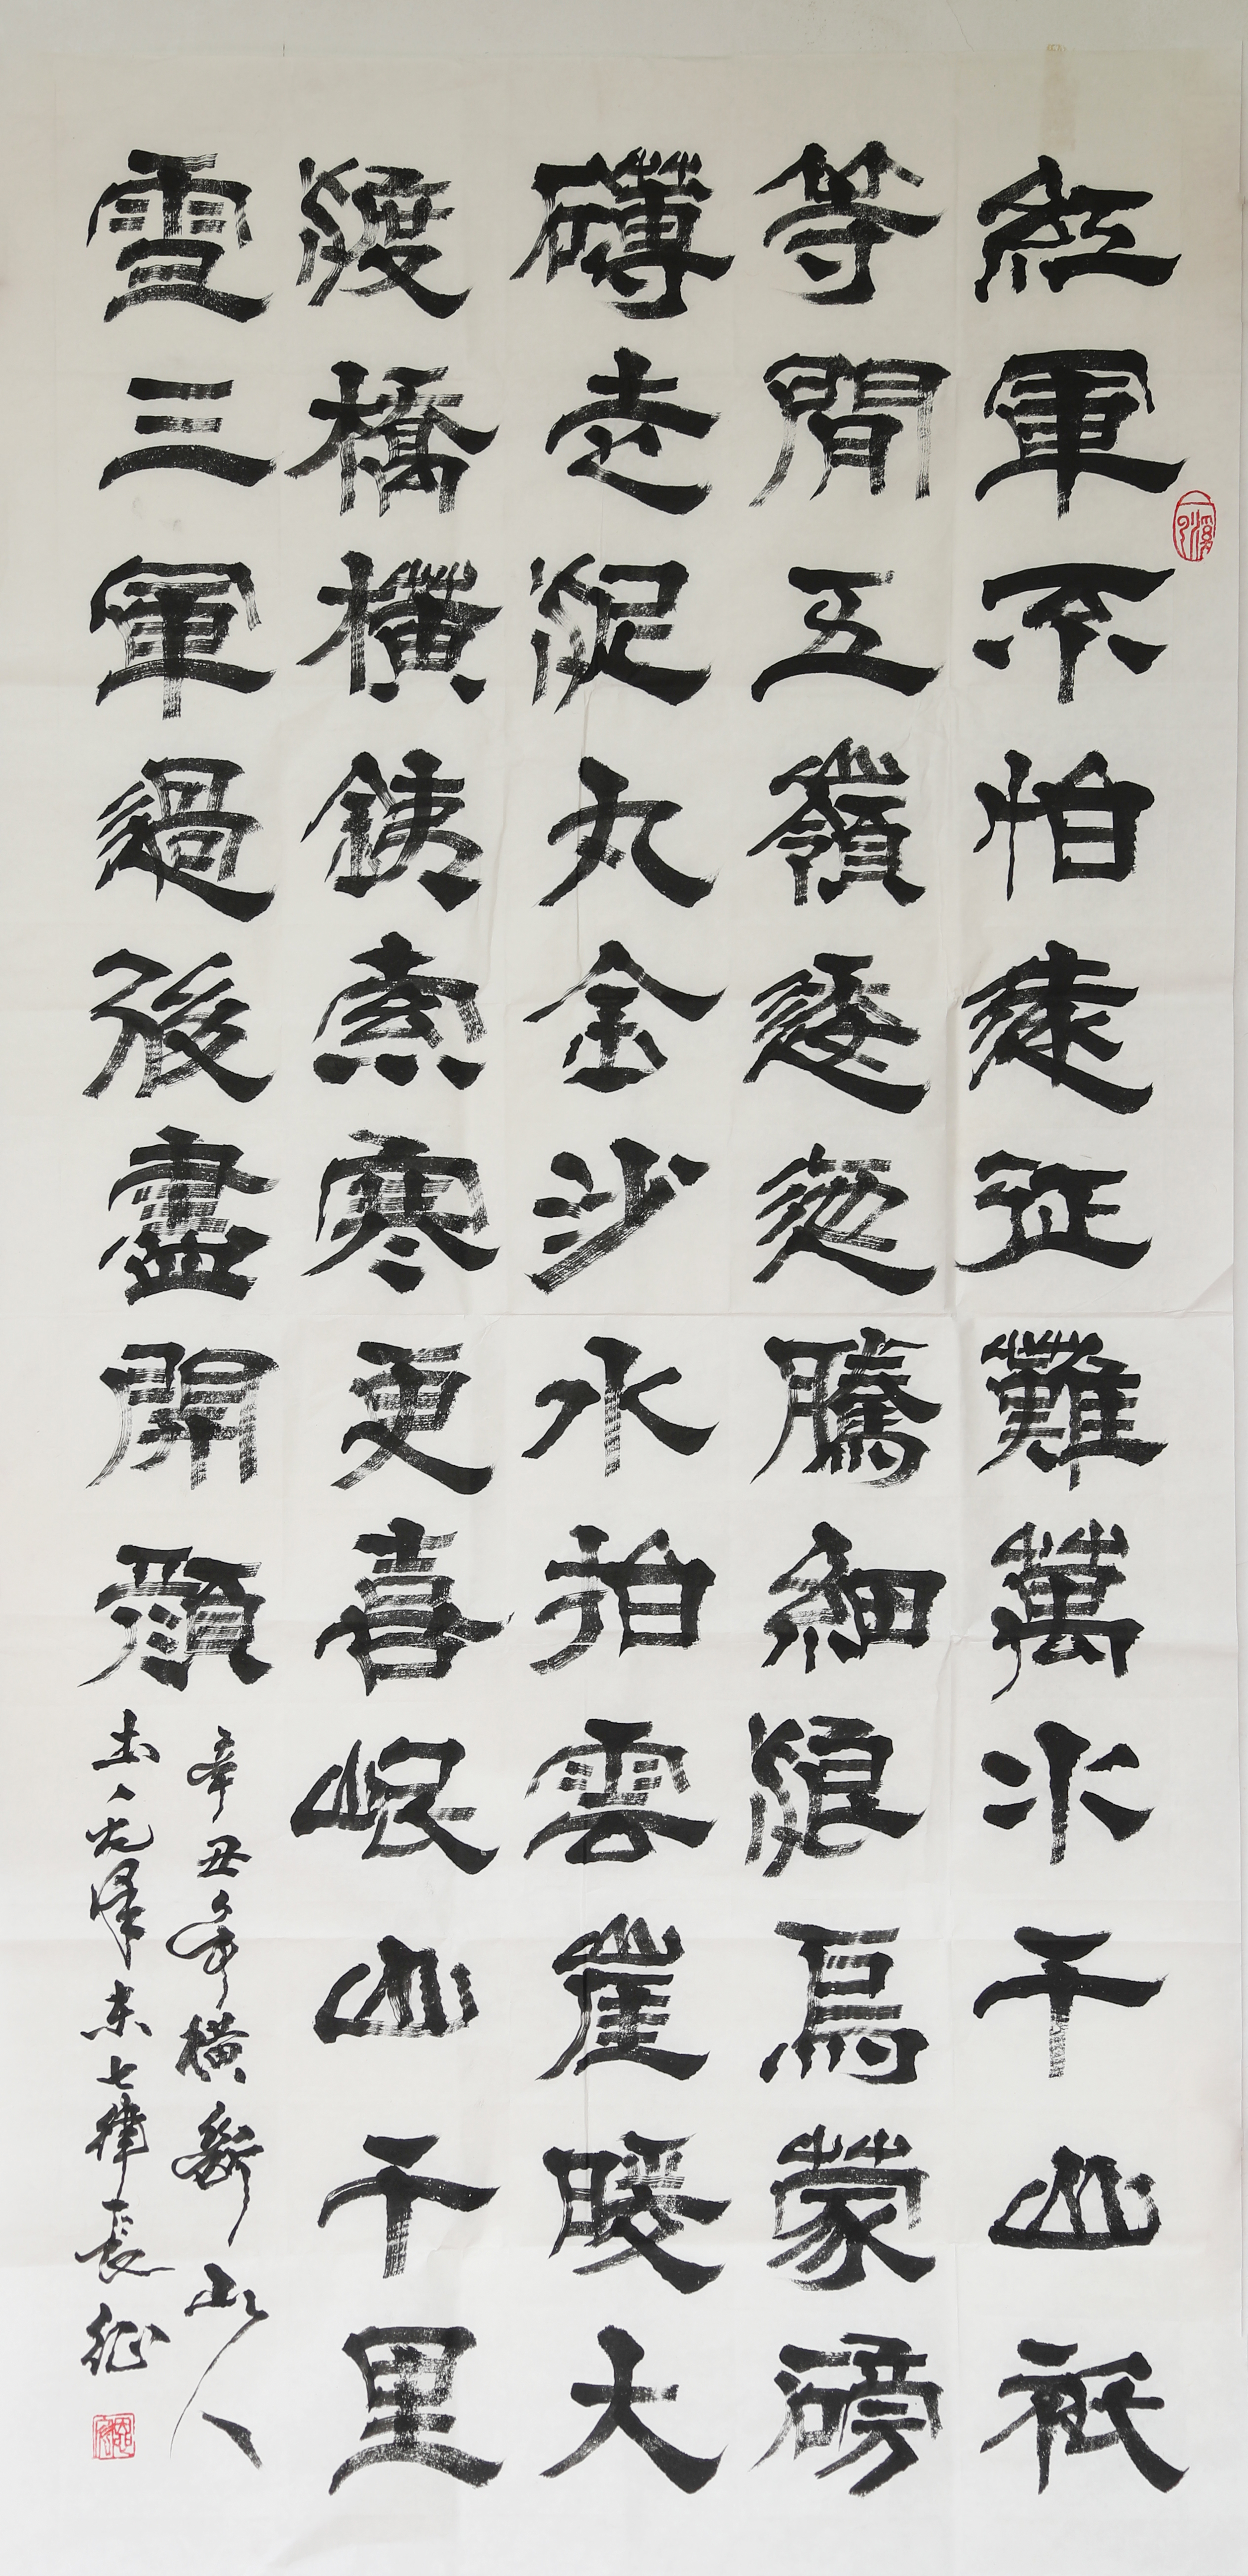 紅軍不怕遠征難萬水千山衹
等閒五嶺逶迤騰細浪烏蒙磅
礴走泥丸金沙水拍雲崖暖大
渡橋橫銕索寒更喜岷山千里
雪三軍過後盡開顏
辛丑年橫斷山人
書毛澤東七律長征